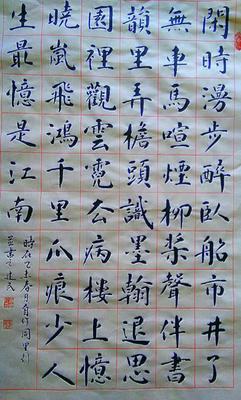 閑時漫步醉臥船市井了
無車馬喧煙柳槳聲伴書
韻里弄檐頭識墨翰退思
園裡觀雲霓去病樓上憶
曉嵐飛鴻千里爪痕少人
生最憶是江南
時在乙未春月自作同里行
並書之 建民